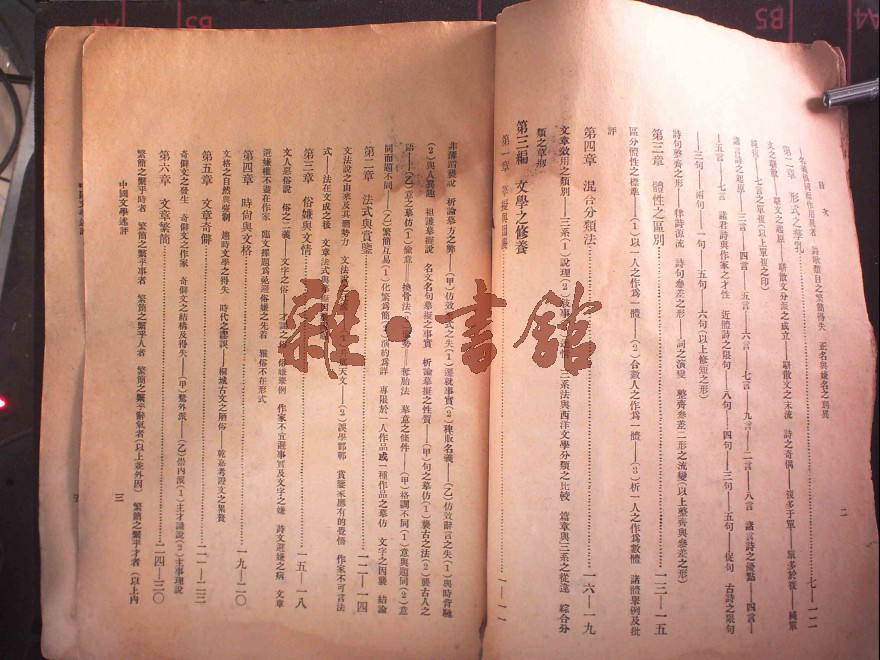 目次
二
文之駢散——駢散文之起原——駢散文分派之成立——駢散文之末流 詩之奇偶——複多于單——單多於複——純單
純複——七言之單複(以上單複之印)
諸言詩之起原——三言——四言——五言——六言——七言——九言——二言——八言 諸言詩之優點——四言——
——五言——七言 諸君詩與作家之才性 近體詩之限句——八句——四句——三句——五句——促句 古詩之限句
——三句——兩句——一句——五句——六句(以上修短之形)
詩句整齊之形——律詩源流 詩句參差之形——詞之演變 整齊參差二形之流變(以上整齊與參差之形)
第三章 體性之區別 一三——一五
區分體性之標準——(1)以一人之作為一體——(2)合數人之作為一體——(3)析一人之作為數體 諸體舉例及批
評
第四章 混合分類法 一六——一九
文章效用之類別——三系(1)說理(2)敘事 三系法與西洋文學分類之比較 篇章與三系之從違 綜合分
類之
第三編 文學之修養
第一章 一——一一
析論摹方之弊——(甲)仿效 之失(1)遷就事實(2)稗販名義——(乙)仿效辭言之失(1)與時背馳
(2)與人異趣 祖 摹擬說 名文名句摹擬之事實 析論摹擬之性質——(甲)句之摹仿(1)襲古之法(2)襲古人之
語——(乙)意之摹仿(1)偷意——換骨法 偷勢——奪胎法 摹意之條件——(甲)格調不同(1)意與題同(2)意
同而題不同——(乙)繁簡互易(1)化繁為簡(2)演約為詳 專限於一人作品或一種作品之摹仿 文字之因襲 結論
第二章 法式與賞鑒 一二——一四
文法說之由來及其潛勢力 天文——(2)誤學邯鄲 賞鑒家應有的覺悟 作家不可言法
式——法在文成之後 文章法式與
第三章 俗嫌與文情 一五——一八
文人惡俗說 俗之二義——文字之俗——才識之俗 俗嫌舉例 作家不宜避事實及文字之嫌 詩文避嫌之病 文章
避嫌權不盡在作家 臨文擇題為免避俗嫌之先着 雅俗不在形式
第四章 時尚與文格 一九——二〇
文格之自然與強制 趨時文學之得失 時代之盡誤——桐城古文之陋俗——乾嘉考證文之累贅
第五章 文章奇僻 二一——二三
奇僻文之發生 奇僻文之作家 奇僻文之結構及得失——(甲)鶩外派——(乙)崇內派(1)主才識說(2)主事理說
第六章 文章繁簡 二四——三〇
繁簡之繫乎時者 繁簡之繫乎事者 繁簡之繫乎人者 繁簡之繫乎辭氣者(以上並外因) 繁簡之繫乎才者(以上內
中國文學述評
三
雜·書館